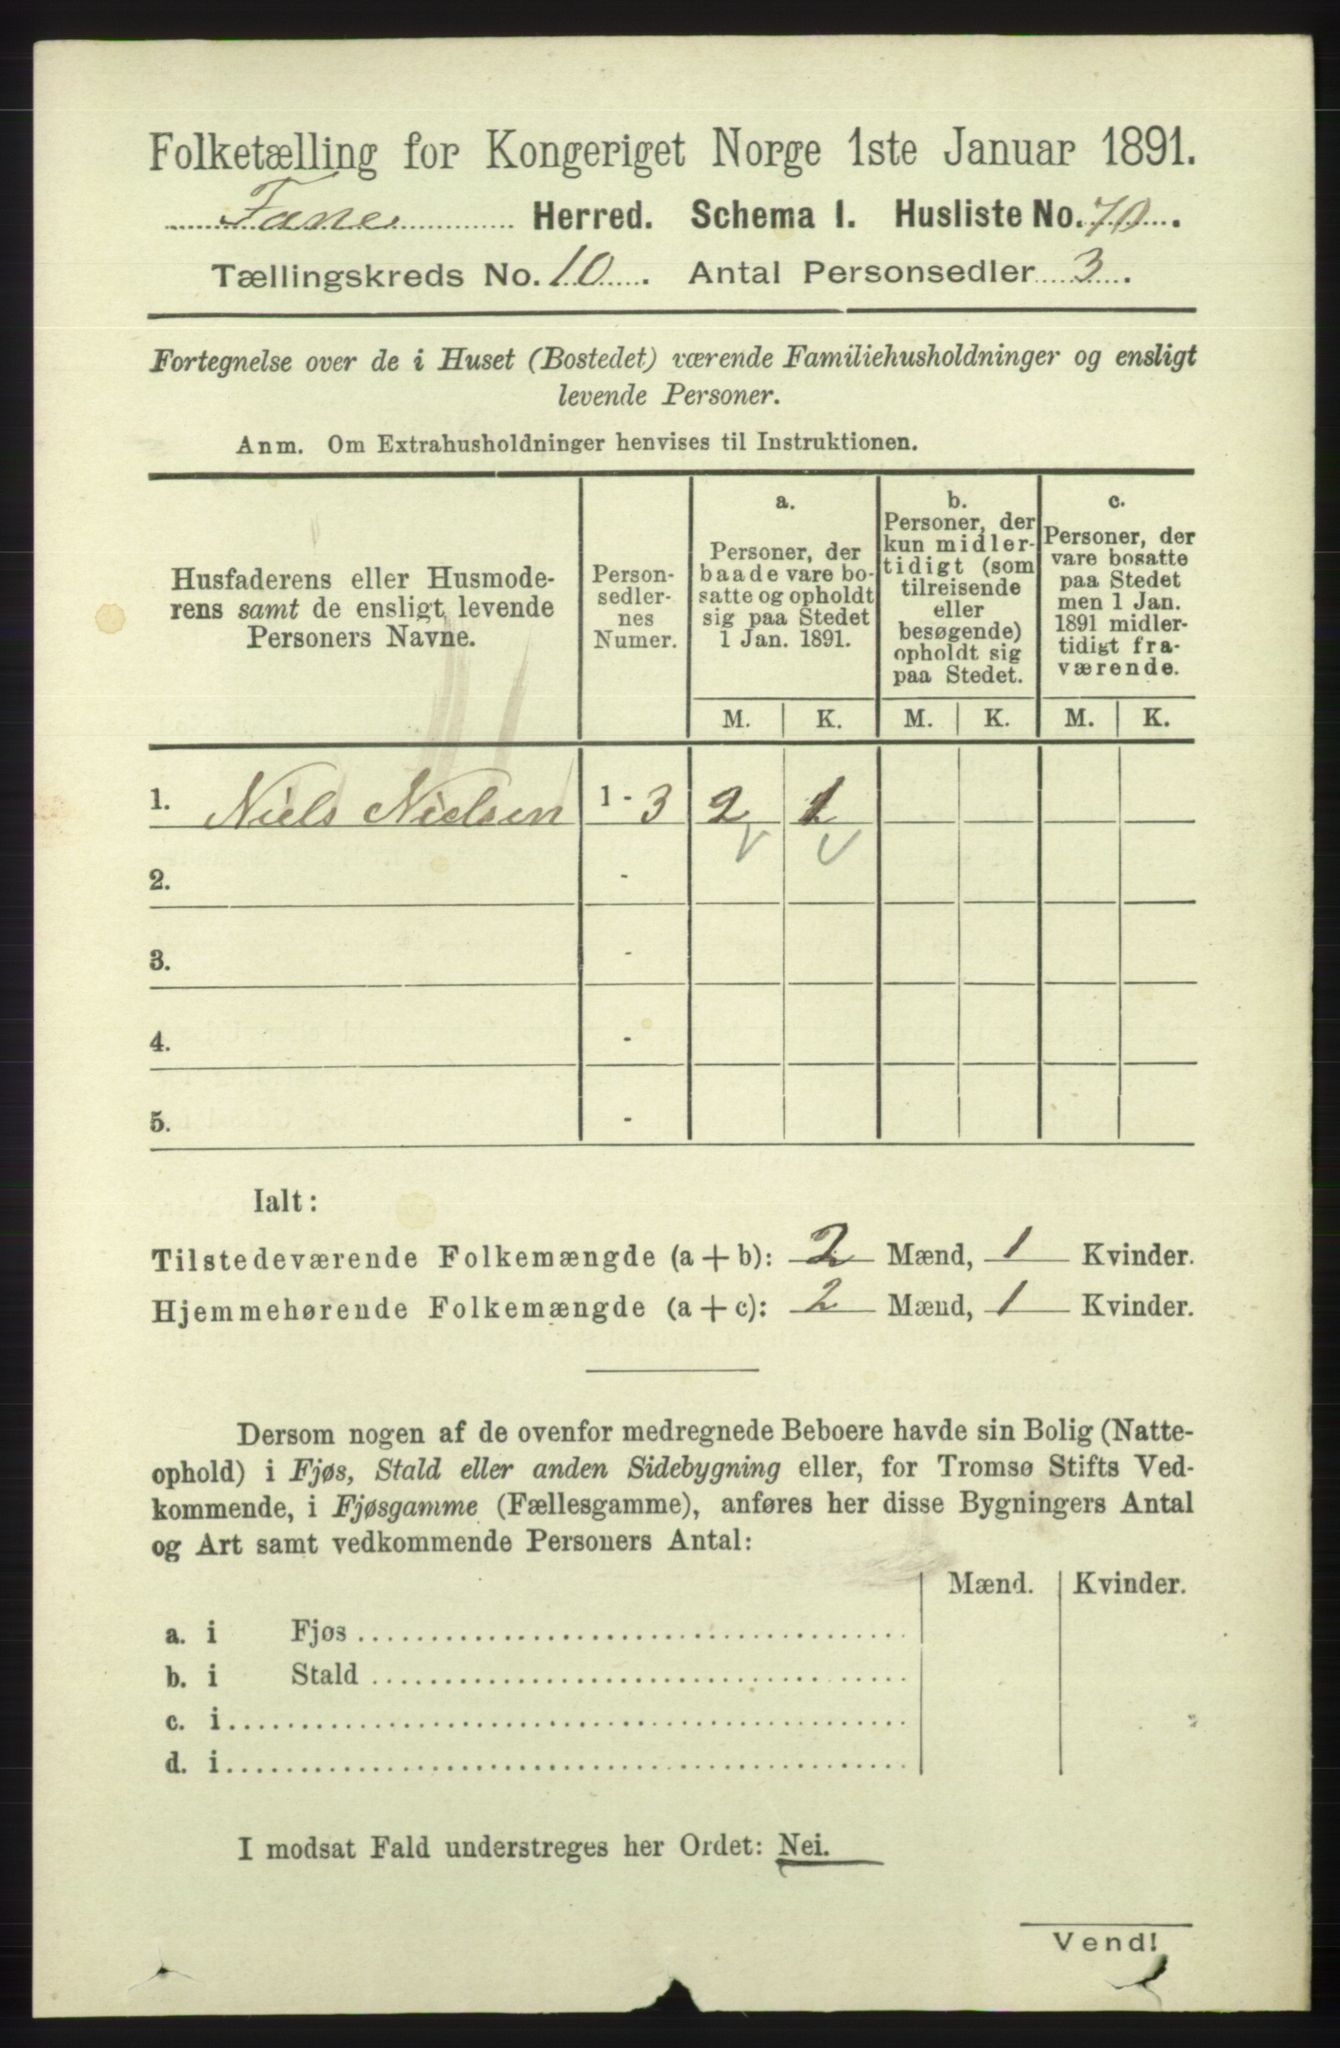 Folketælling for Kongeriget Norge 1ste Januar 1891.
Fane Herred. Schema I. Husliste No. 70.
Tællingskreds No. 10. Antal Personsedler 3.
Fortegnelse over de i Huset (Bostedet) værende Familiehusholdninger og ensligt
levende Personer.
Anm. Om Extrahusholdninger henvises til Instruktionen.
Husfaderens eller Husmode-
rens samt de ensligt levende
Personers Navne.
Person-
sedler-
nes
Numer.
a.
Personer, der
baade vare bo-
satte og opholdt
sig paa Stedet
1 Jan. 1891.
b.
Personer, der
kun midler-
tidigt (som
tilreisende
eller
besøgende)
opholdt sig
paa Stedet.
c.
Personer, der
vare bosatte
paa Stedet
men 1 Jan.
1891 midler-
tidigt fra-
værende.
M. K. M. K. M. K.
1. Niels Nielsen 1 - 3 2 1
2. -
3. -
4. -
5. -
Ialt:
Tilstedeværende Folkemængde (a + b): 2 Mænd, 1 Kvinder.
Hjemmehørende Folkemængde (a + c): 2 Mænd, 1 Kvinder.
Dersom nogen af de ovenfor medregnede Beboere havde sin Bolig (Natte-
ophold) i Fjøs, Stald eller anden Sidebygning eller, for Tromsø Stifts Ved-
kommende, i Fjøsgamme (Fællesgamme), anføres her disse Bygningers Antal
og Art samt vedkommende Personers Antal:
Mænd. Kvinder.
a. i Fjøs
b. i Stald
c. i
d. i
I modsat Fald understreges her Ordet: Nei.
Vend!